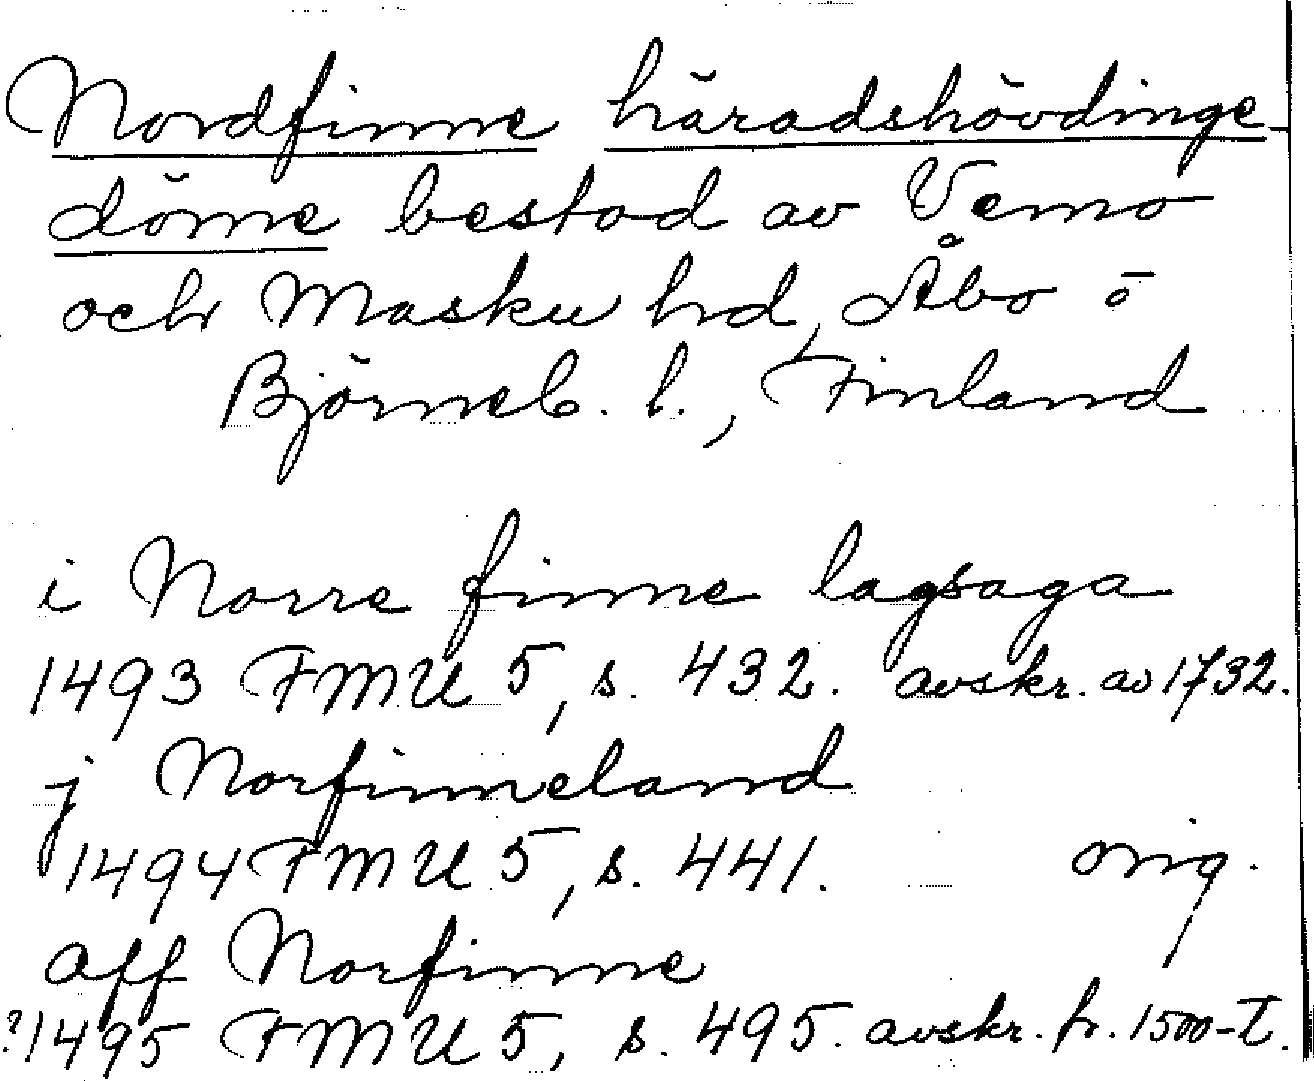 Nordfinne häradshövdinge-
döme bestod av Vemo
och Masku hd, Åbo o
Björneb. l., Finland
i Norre finne lagsaga
1493 FMU 5, s. 432. avskr. av 1732.
j Norfinneland
1494 FMU 5, s. 441. orig.
aff Norfinne
?1495 FMU 5, s. 495. avskr. fr. 1500-t.